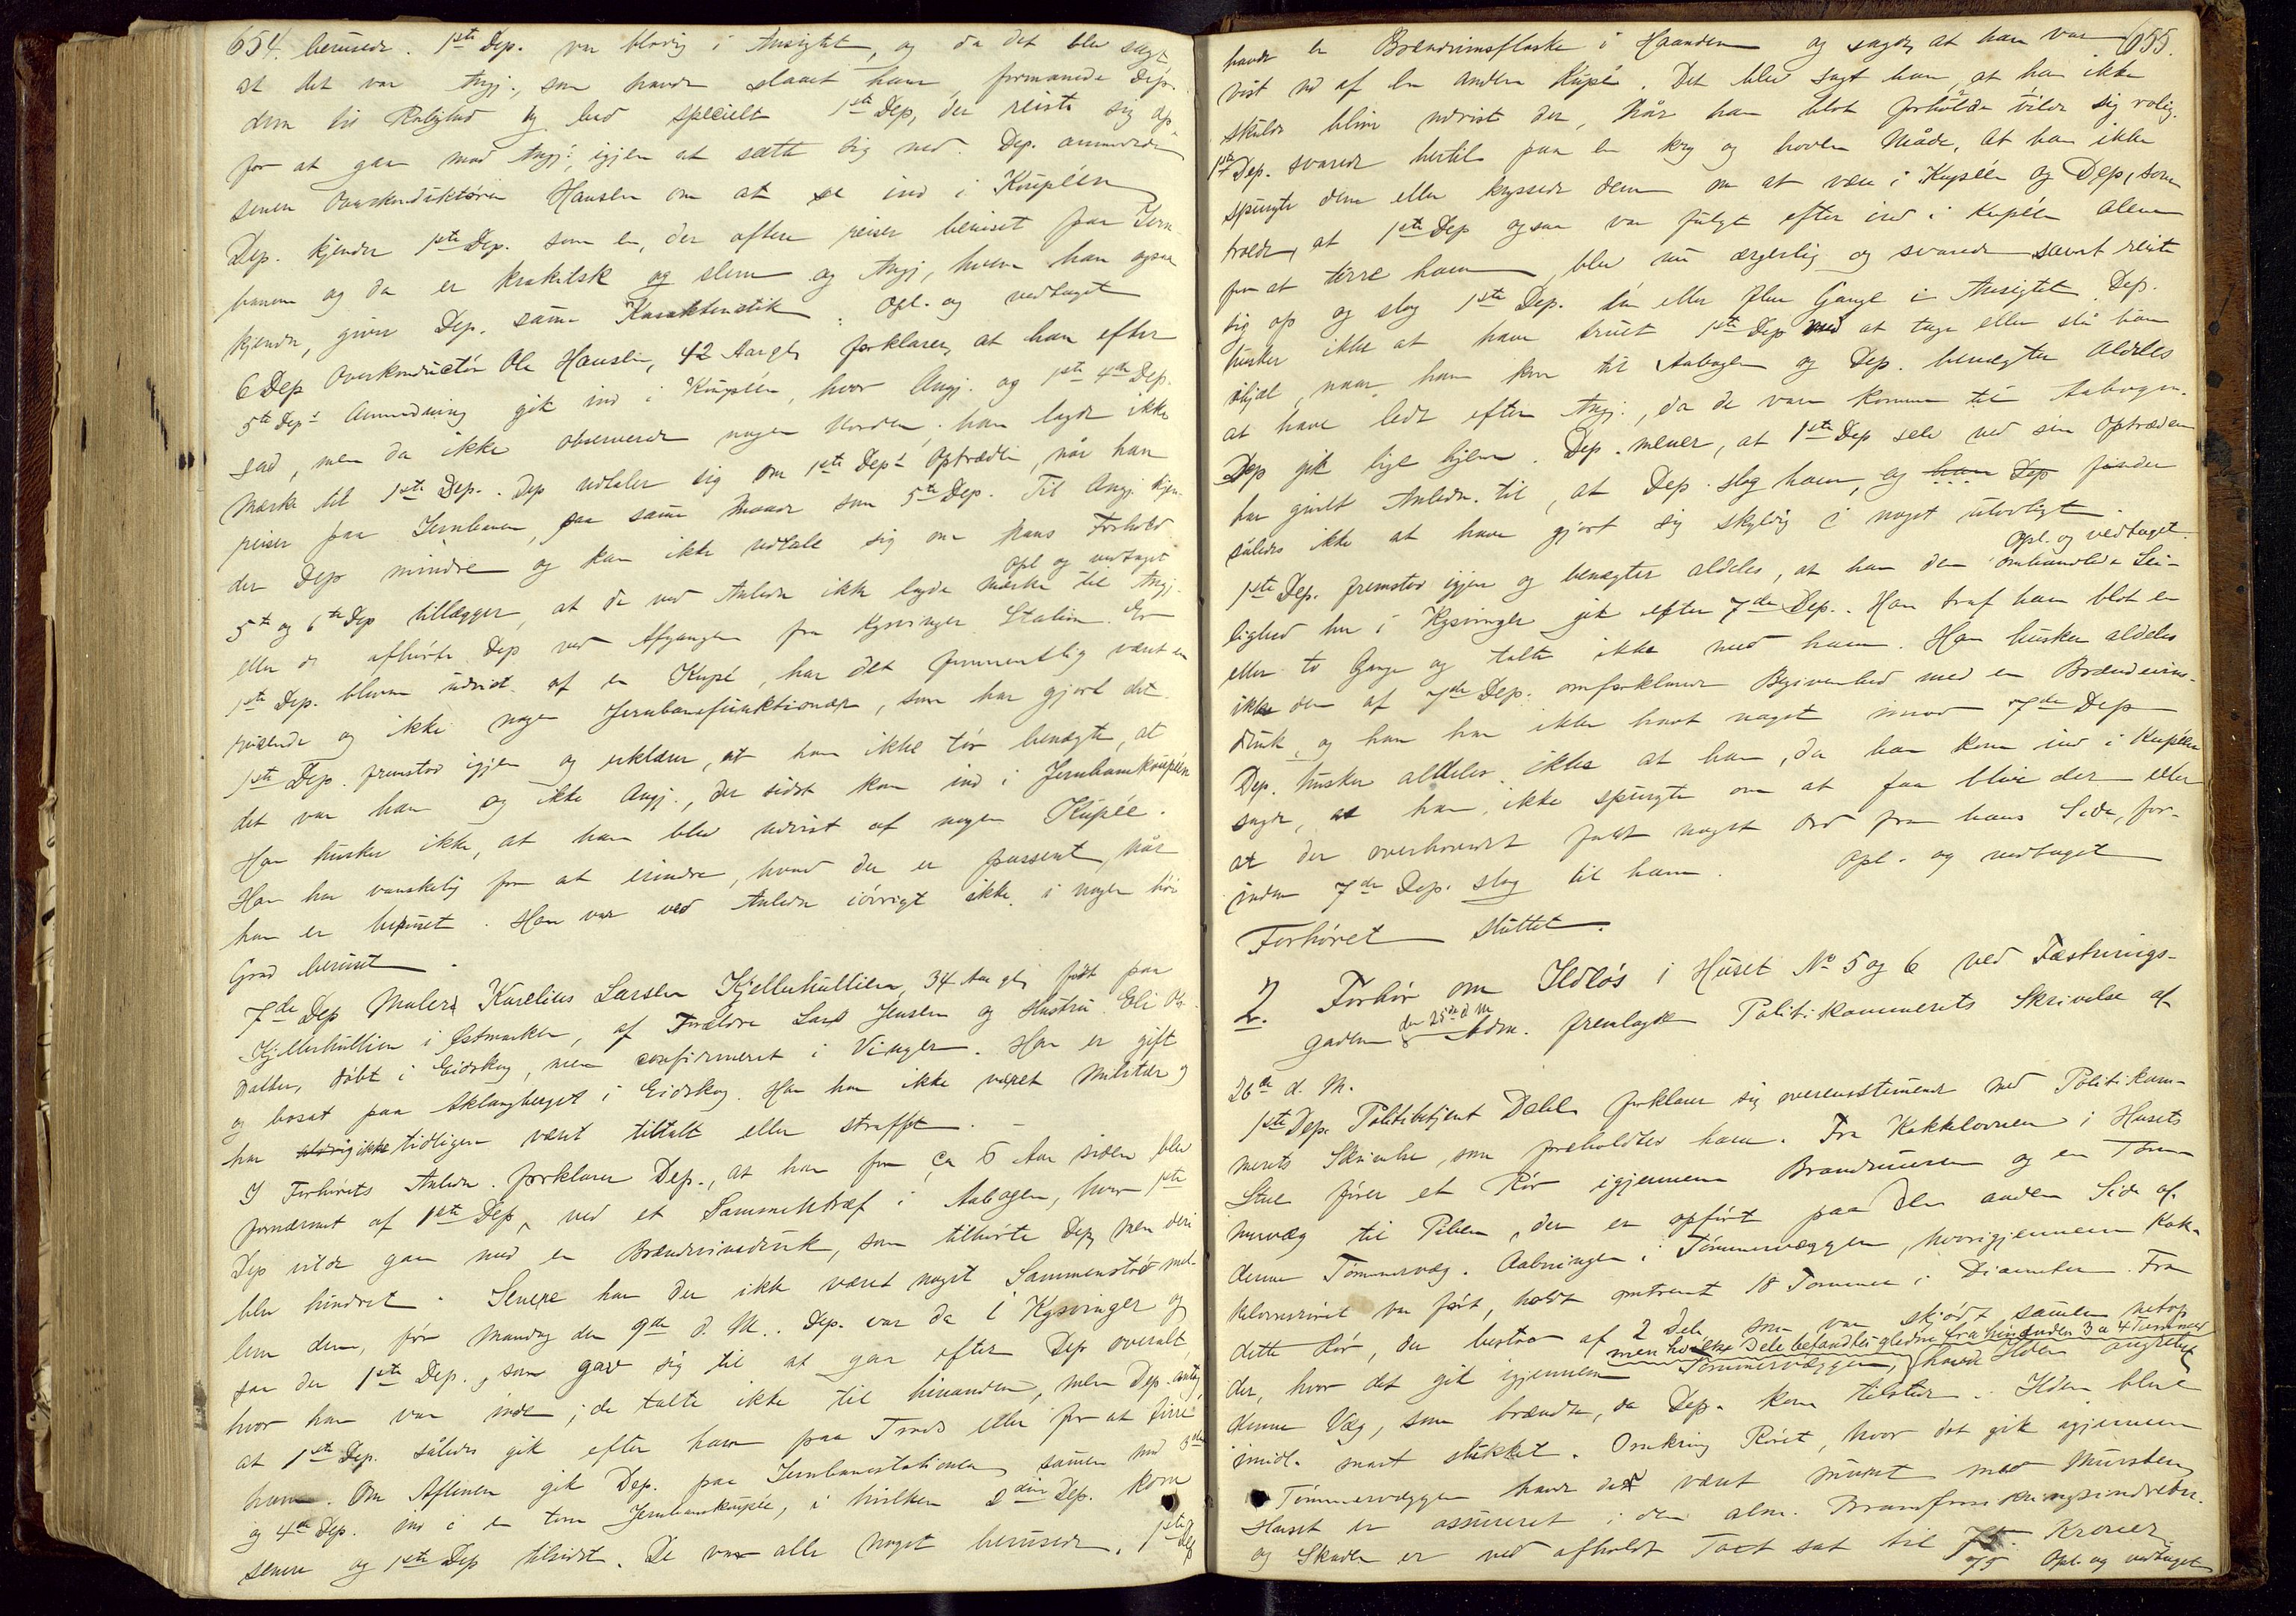 654. berusede. 1ste Dep. var blodig i Ansigtet, og da det blev sagt,
at det var Angj., som havde slaaet ham, formanede Dep.
dem til Rolighed og bad specielt 1ste Dep, der reiste sig op
for at gaa mod Angj. igjen at sætte sig ned. Dep. anmodede
senere Overkonduktøren Hansen om at se ind i Kupéen
Dep. kjender 1ste Dep. som en, der oftere reiser beruset paa Jern-
banen og da er krakilsk og slem og Angj, hvem han ogsaa
kjender, giver Dep. samme Karakteristik. Opl. og vedtaget
6 Dep Overkonductør Ole Hansen, 42 Aar gl, forklarer, at han efter
5te Dep's Anmodning gik ind i Kupéen, hvor Angj. og 1ste 4de Dep.
sad, men da ikke observerede nogen Uorden; han lagde ikke
Mærke til 1ste Dep. Dep udtaler sig om 1ste Dep's Optræden, når han
reiser paa Jernbanen, paa samme Maade som 5te Dep. Til Angj. kjen-
der Dep mindre og kan ikke udtale sig om hans Forhold.
Opl og vedtaget
5te og 6te Dep tillægger, at de ved Anledn ikke lagde Mærke til Angj.
eller de afhørte Dep ved Afgangen fra Kongsvinger Station. Er
1ste Dep. bleven udvist af en Kupé, har det formentlig været en
reisende og ikke nogen Jernbanefunktionær, som har gjort det.
1ste Dep. fremstod igjen og erklærer, at han ikke tør benægte, at
det var ham og ikke Angj., der sidst kom ind i Jernbanekupéen
Han husker ikke, at han blev udvist af nogen Kupée.
Han har vanskelig for at erindre, hvad der er passeret, når
han er beruset. Han var ved Anledn iøvrigt ikke i nogen høi
Grad beruset.
7de Dep Maler Karelius Larsen Kjellerhultlien, 34 Aar gl, født paa
Kjellerhultlien i Østmarken, af Forældre Lars Jensen og Hustru Eli
Datter, døbt i Eidskog, men confirmeret i Vinger. Han er gift
og bosat paa Aklangberget i Eidskog. Han har ikke været Militær og
har aldrig ikke tidligere været tiltalt eller straffet.
I Forhørets Anledn. forklarer Dep., at han for ca 6 Aar siden blev
fornærmet af 1ste Dep, ved et Sammentræf i Aabogen, hvor 1ste
Dep vilde gaa med en Brændevinsdunk, som tilhørte Dep, men deri
blev hindret. Senere har der ikke været noget Sammenstød mel-
lem dem, før Mandag den 9de d. M. Dep. var da i Kgsvinger og
saa der 1ste Dep., som gav sig til at gaa efter Dep overalt,
hvor han var inde; de talte ikke til hinanden, men Dep. antog,
at 1ste Dep. således gik efter ham paa Trods eller for at tirre
ham. Om Aftenen gik Dep. paa Jernbanestationen sammen med 3die
og 4de Dep. ind i en tom Jernbanekupée, i hvilken 2den Dep. kom
senere og 1ste Dep tilsidst. De var alle noget berusede. 1ste Dep
655.
havde en Brændevinsflaske i Haanden og sagde, at han var
vist ud af en anden Kupé. Det blev sagt ham, at han ikke
skulde blive udvist der, Når han blot forholde vilde sig rolig.
1ste Dep. svarede hertil paa en kry og hoven Måde, at han ikke
spurgte dem eller kyssede dem om at være i Kupéen og Dep, som
troede, at 1ste Dep ogsaa var fulgt efter ind i Kupéen alene
for at tirre ham, blev nu ærgerlig og svarede samt reiste
sig op og slog 1ste Dep. én eller flere Gange i Ansigtet. Dep.
husker ikke at have truet 1ste Dep med at tage eller slå ham
ihjel, naar han kom til Aabogen og Dep. benægter aldeles
at have ledt efter Angj., da de vare kommen til Aabogen.
Dep gik lige hjem. Dep. mener, at 1ste Dep selv ved sin Optræden
har givet Anledn. til, at Dep slog ham, og han Dep finder
således ikke at have gjort sig skyldig i noget ulovligt.
Opl. og vedtaget.
1ste Dep. fremstod igjen og benægter aldeles, at han den omhandlede Lei-
lighed her i Kgsvinger gik efter 7de Dep. Han traf ham blot en
eller to Gange og talte ikke med ham. Han husker aldeles
ikke den af 7de Dep. omforklarede Begivenhed med en Brændevins-
dunk, og han har ikke havt noget imod 7de Dep
Dep. husker aldeles ikke at han, da han kom ind i Kupéen
sagde, at han ikke spurgte om at faa blive der eller
at der overhovedet faldt noget Ord fra hans Side, for-
inden 7de Dep. slog til ham. Opl. og vedtaget
Forhøret sluttet.
2. Forhør om Ildløs i Huset No 5 og 6 ved Fæstnings-
gaden den 25de d M Adm. fremlagde Politikammerets Skrivelse af
26de d. M.
1ste Dep. Politibetjent Dahl forklarer sig overensstemmende med Politikam-
merets Skrivelse, som foreholdtes ham. Fra Kakkelovnen i Husets
Stue fører et Rør igjennem Brandmuren og en Tøm-
mervæg til Piben, der er opført paa den anden Side af
denne Tømmervæg. Aabningen i Tømmervæggen, hvorigjennem Kak-
kelovnsrøret var ført, holdt omtrent 18 Tommer i Diameter. Fra
dette Rør, der bestod af 2 Dele som var skjødt sammen netop
men hvis Dele befandtes glidne fra hinanden 3 a 4 Tommer
der, hvor det gik igjennem Tømmervæggen, havde Ilden angrebet
denne Væg, som brændte, da Dep. kom tilstede. Ilden blev
imidl. snart slukket. Omkring Røret, hvor det gik igjennem
Tømmervæggen havde der været muret med Mursten
Huset er assureret i den alm. Brandforsikringsindretn.
og Skaden er ved afholdt Taxt sat til 75 Kroner
75 Opl. og vedtaget